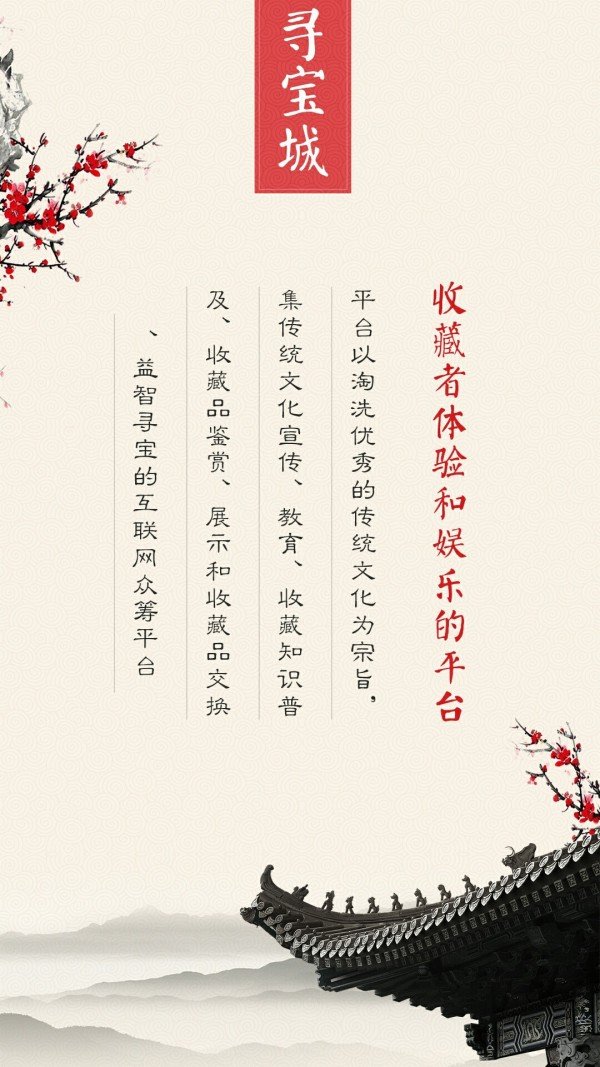 寻宝城
收藏者体验和娱乐的平台
平台以淘洗优秀的传统文化为宗旨，
集传统文化宣传、教育、收藏知识普
及、收藏品鉴赏、展示和收藏品交换
、益智寻宝的互联网众筹平台